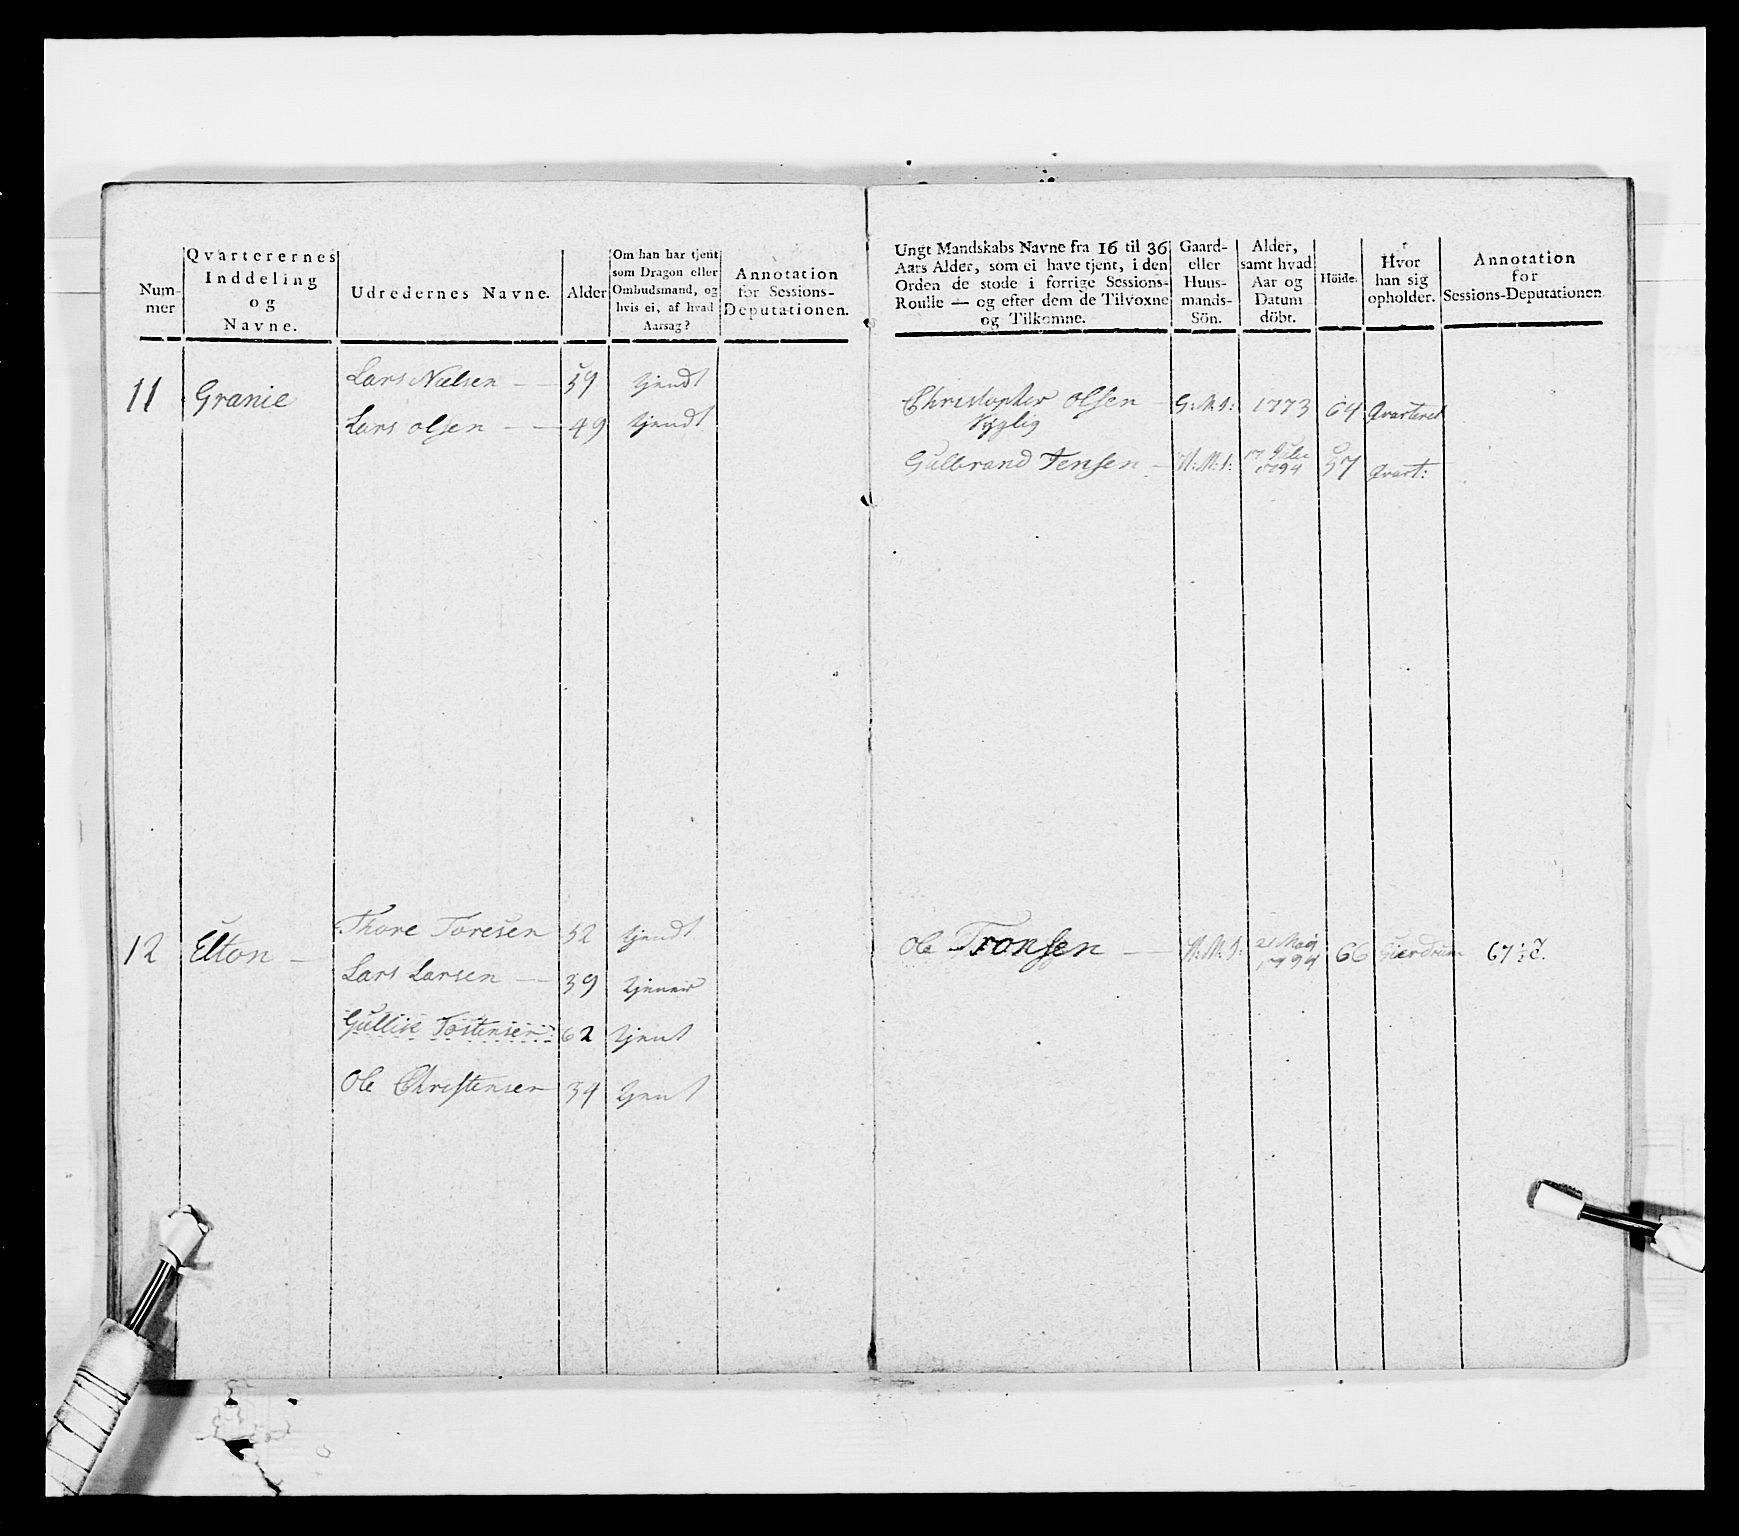 Nummer
Qvarterernes
Inddeling
og
Navne.
Udredernes Navne.
Alder
Om han har tjent
som Dragon eller
Ombudsmand, og
hvis ei, af hvad
Aarsag?
Annotation
for Sessions-
Deputationen.
Ungt Mandskabs Navne fra 16 til 36
Aars Alder, som ei have tjent, i den
Orden de stode i forrige Sessions-
Roulle — og efter dem de Tilvoxne
og Tilkomne.
Gaard-
eller
Huus-
mands-
Sön.
Alder,
samt hvad
Aar og
Datum
döbt.
Höide.
Hvor
han sig
opholder.
Annotation
for
Sessions-Deputationen.
11 Granie Lars Nielsen 59 tjendt
Lars Olsen 49 tjendt
Christopher Olsen G:M:S: 1773 64 Qvarteret
Gulbrand Jensen H:M:S: 17 1794 57 Qvart:
12 Elton Thore Toresen 52 tjendt
Lars Larsen 39 tjener
Gullik Tostensen 62 tjent
Ole Christensen 34 tjent
Ole Tronsen H:M:S: 21 Maij 1794 66 Gierdrum 67 1/2 T.